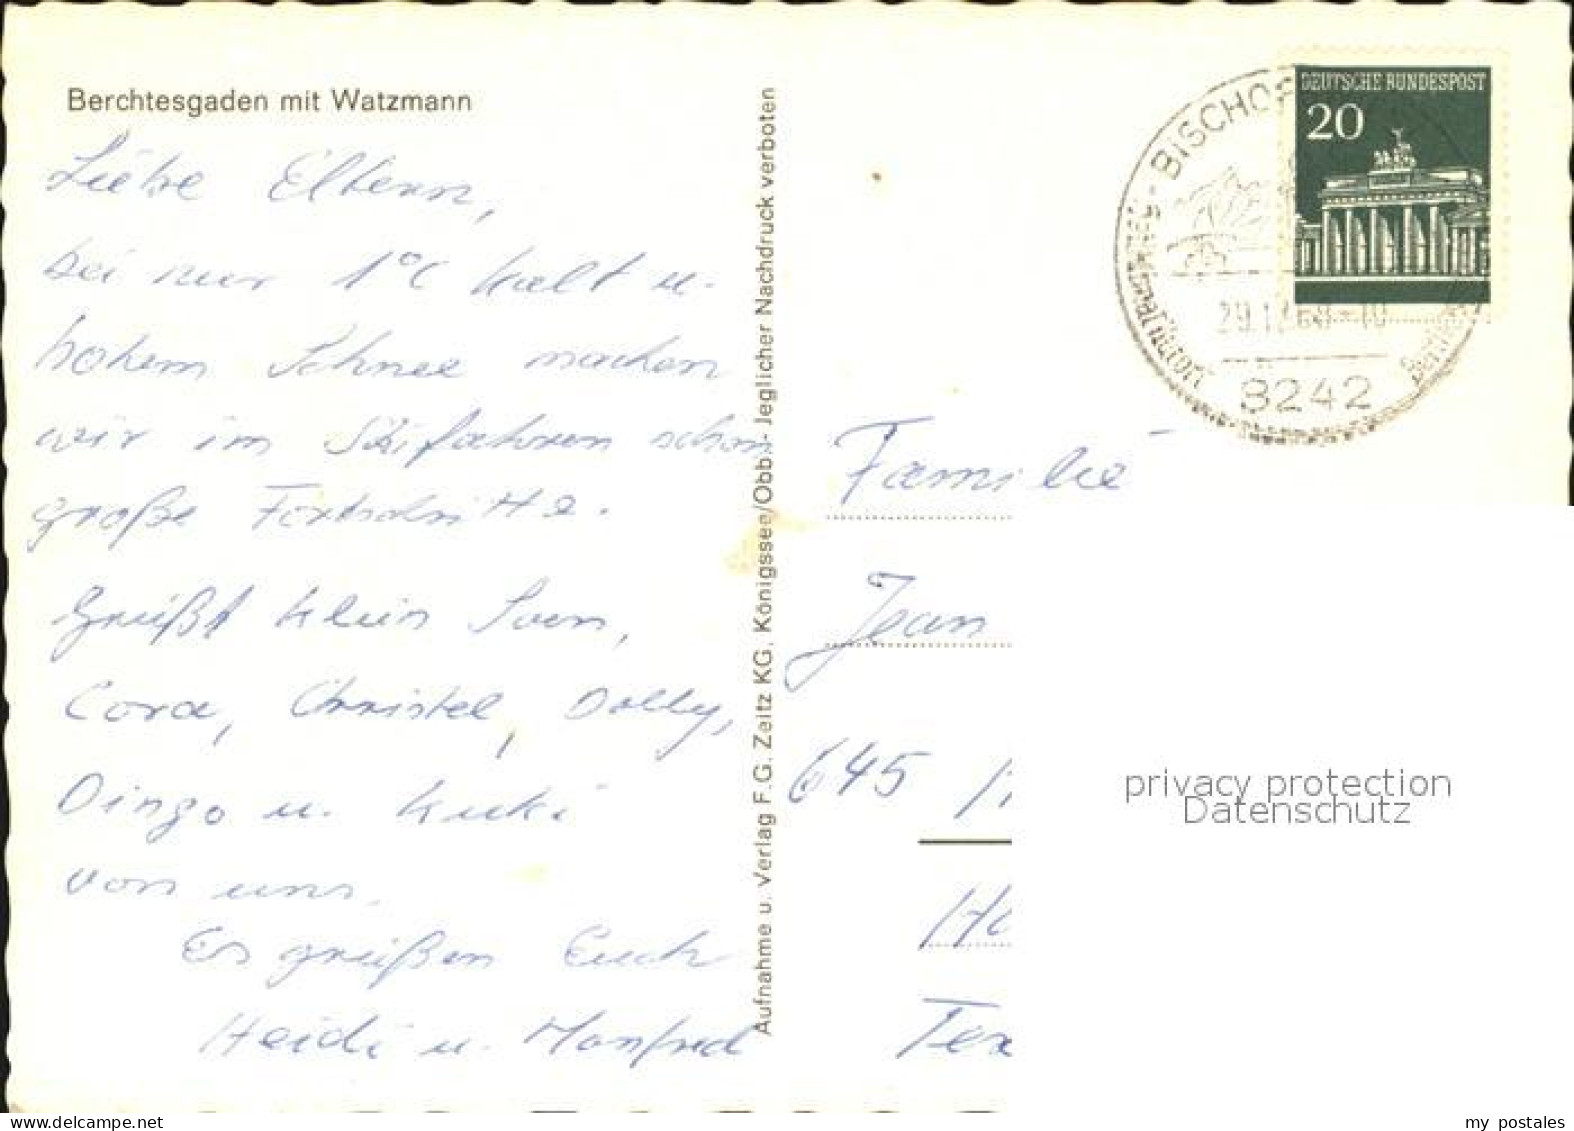 Berchtesgaden mit Watzmann
Liebe Eltern,
bei nur 1°C kalt u.
hohem Schnee machen
wir im Skifahren schon
große Fortschritte.
Grüßt klein Sven,
Cora, Christel, Dolly,
Dingo u. Kuki
von uns.
Es grüßen Euch
Heidi u. Manfred
Aufnahme u. Verlag F.G. Zeitz KG, Königssee/Obb. - Jeglicher Nachdruck verboten
DEUTSCHE BUNDESPOST
20
BISCHOF
29.12.68-10
8242
Familie
Jean
645
Ha
privacy protection
Datenschutz
my postales